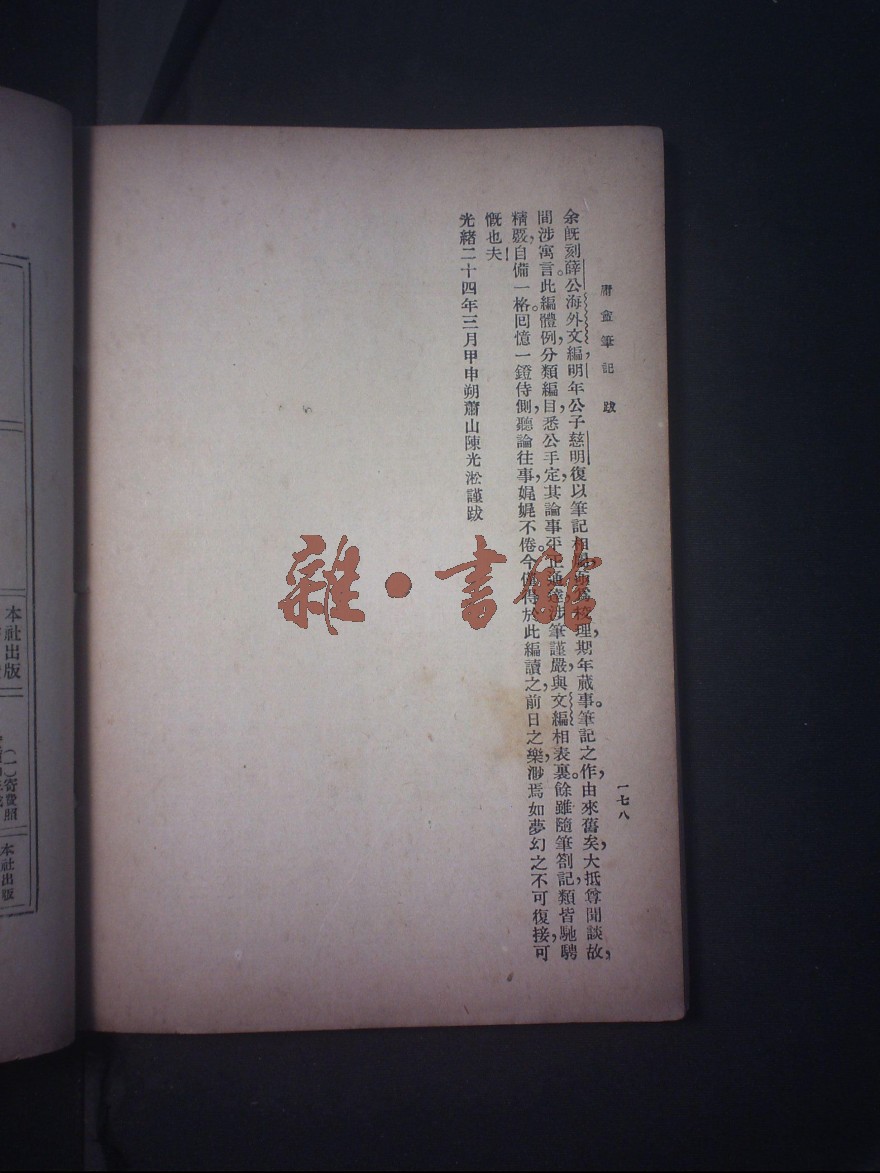 庸盦筆記 跋
一七八
余旣刻薛公海外文編，明年公子慈明復以筆記相屬，校理，期年蕆事。筆記之作，由來舊矣，大抵尊聞談故，
間涉寓言。此編體例分類編目，悉公手定，其論事平正通達，涉筆謹嚴，與文編相表裏。餘雖隨筆劄記，類皆馳騁
精覈，自備一格。囘憶一鐙侍側，聽論往事，娓娓不倦。今僅得於此編讀之，前日之樂，渺焉如夢幻之不可復接，可
慨也夫！
光緒二十四年三月甲申朔蕭山陳光淞謹跋
雜·書館
本社出版
(一)寄費照
本社出版